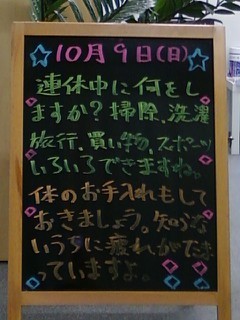 10月9日(日)
連休中に何をし
ますか?掃除、洗濯
旅行、買い物、スポーツ
いろいろできますね。
体のお手入れもして
おきましょう。知らな
いうちに疲れがたま
っていますよ。